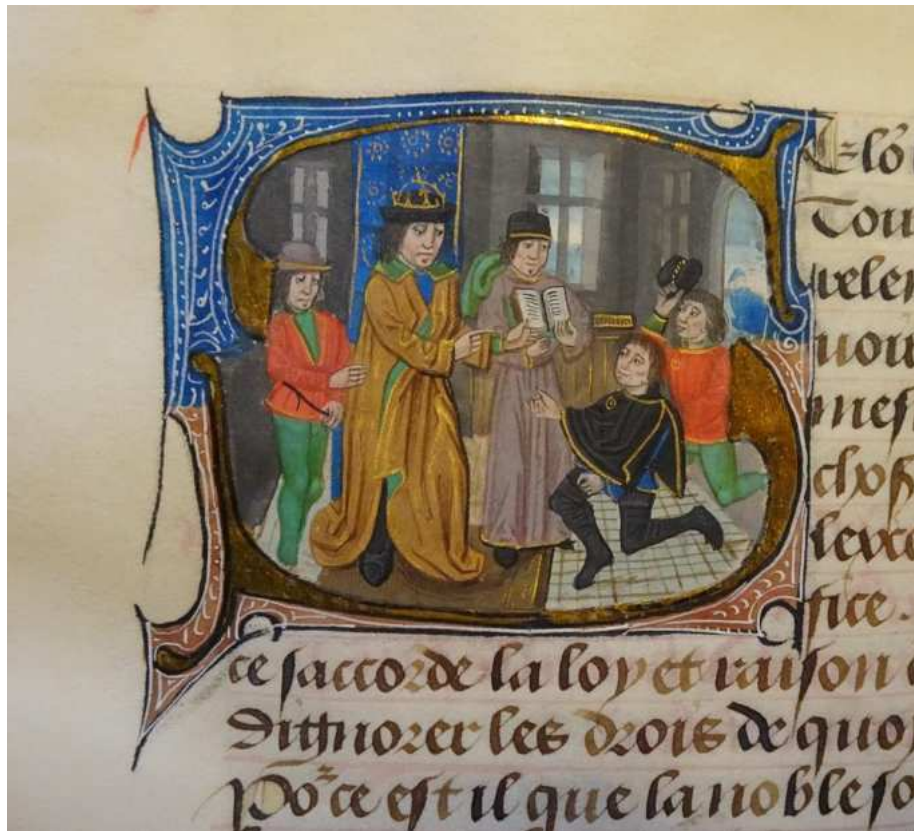 lo
Tou
veler
nou
mes
chos
fice.
ce saccorde la loy et raison
Dignorer les drois de quo
Po ce est il que la noble so